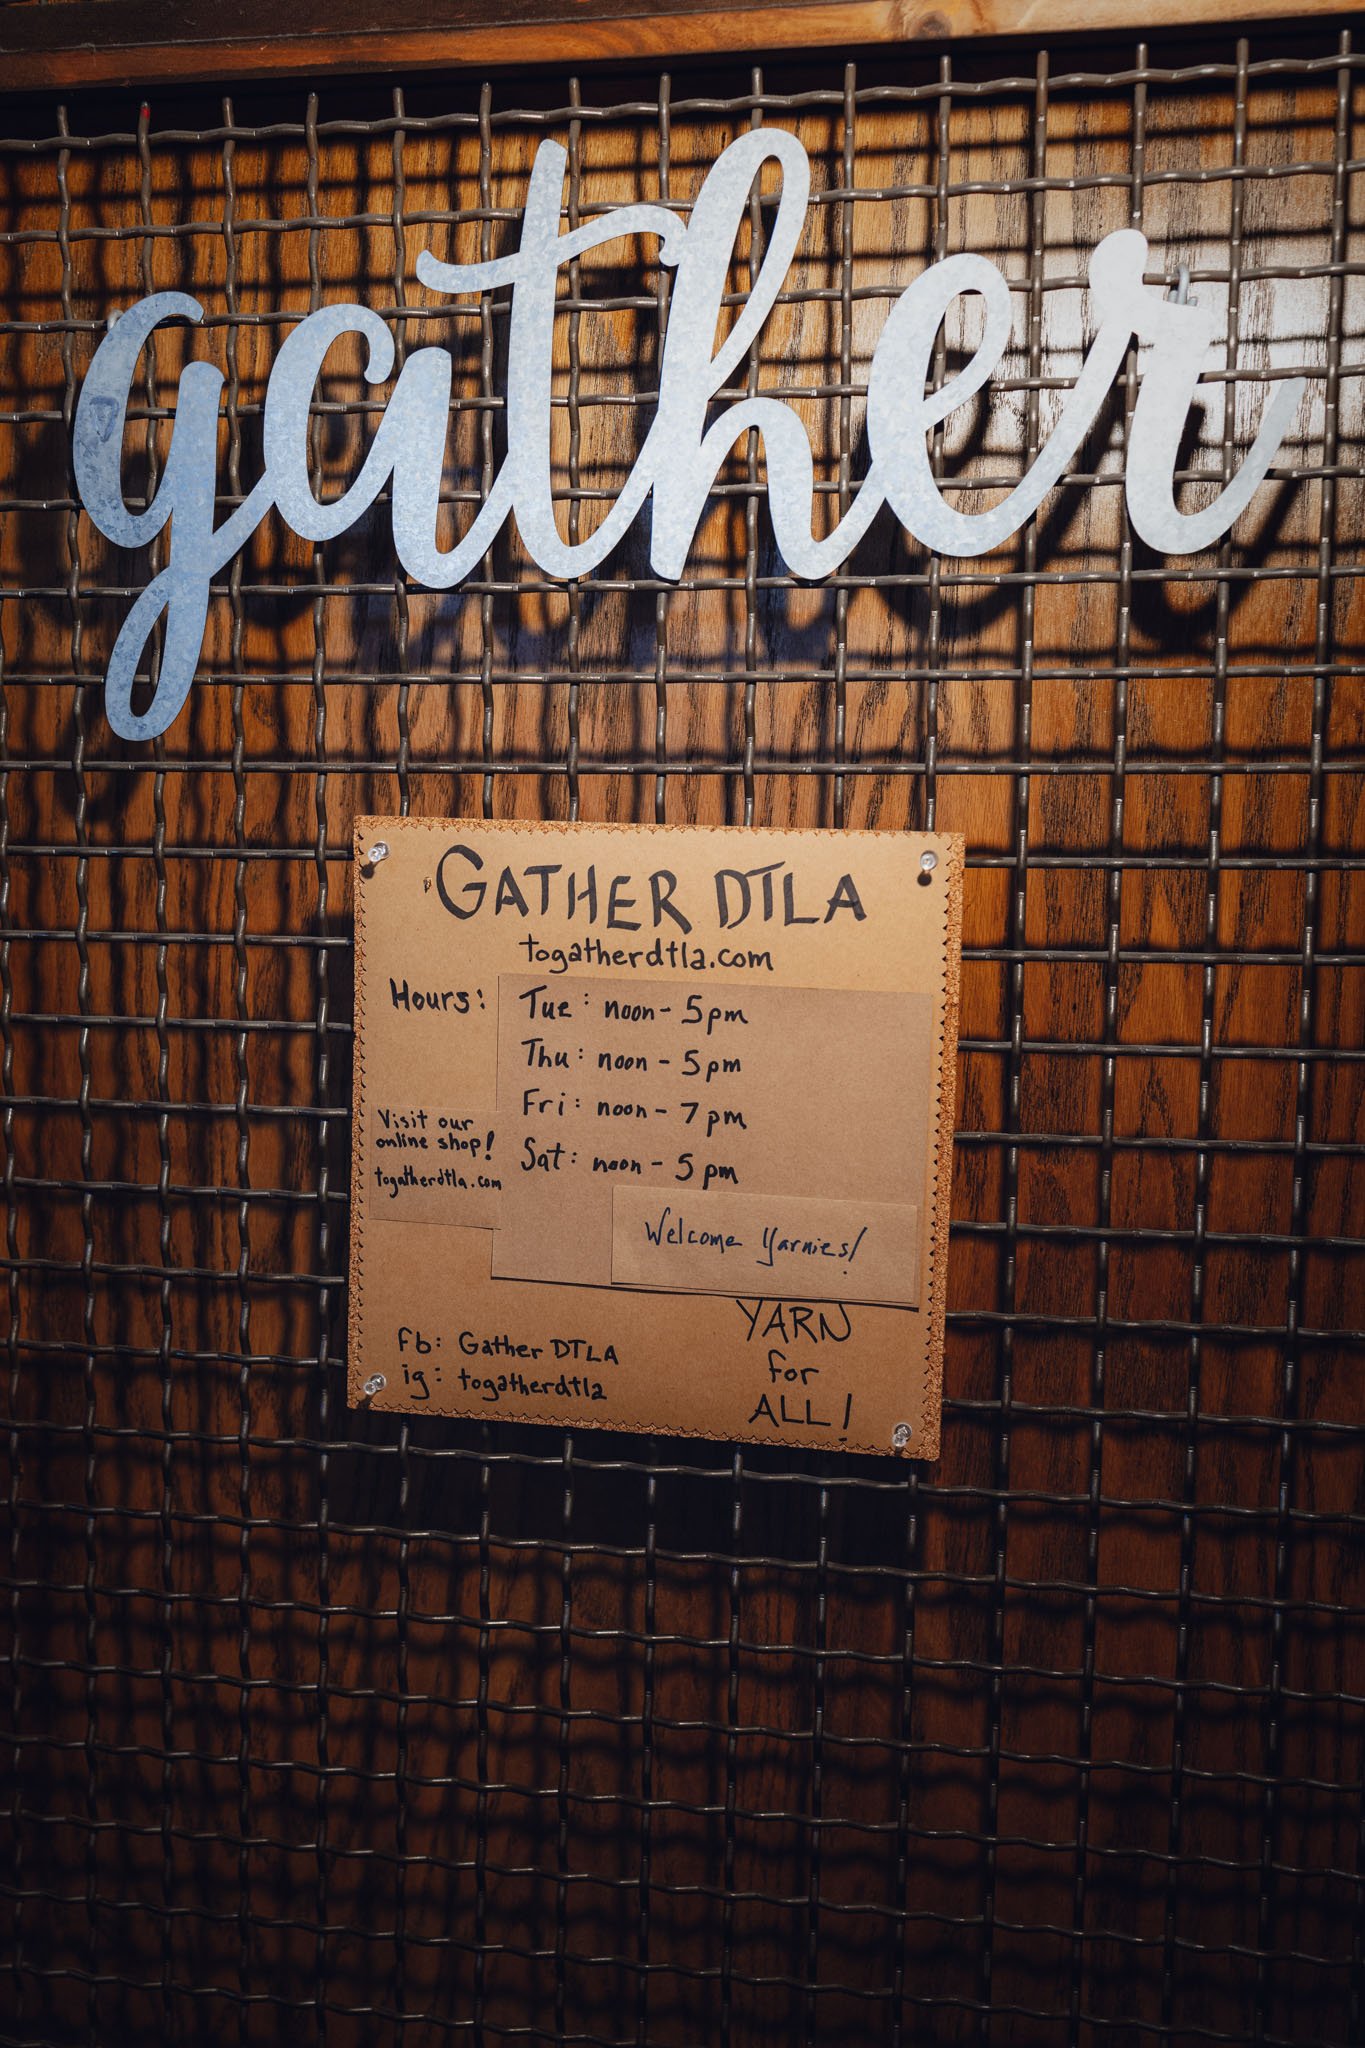 gather
GATHER DTLA
togatherdtla.com
Hours:
Tue: noon - 5pm
Thu: noon - 5pm
Fri: noon - 7pm
Sat: noon - 5pm
Visit our
online shop!
togatherdtla.com
Welcome Yarnies!
YARN
for
ALL!
fb: Gather DTLA
ig: togatherdtla